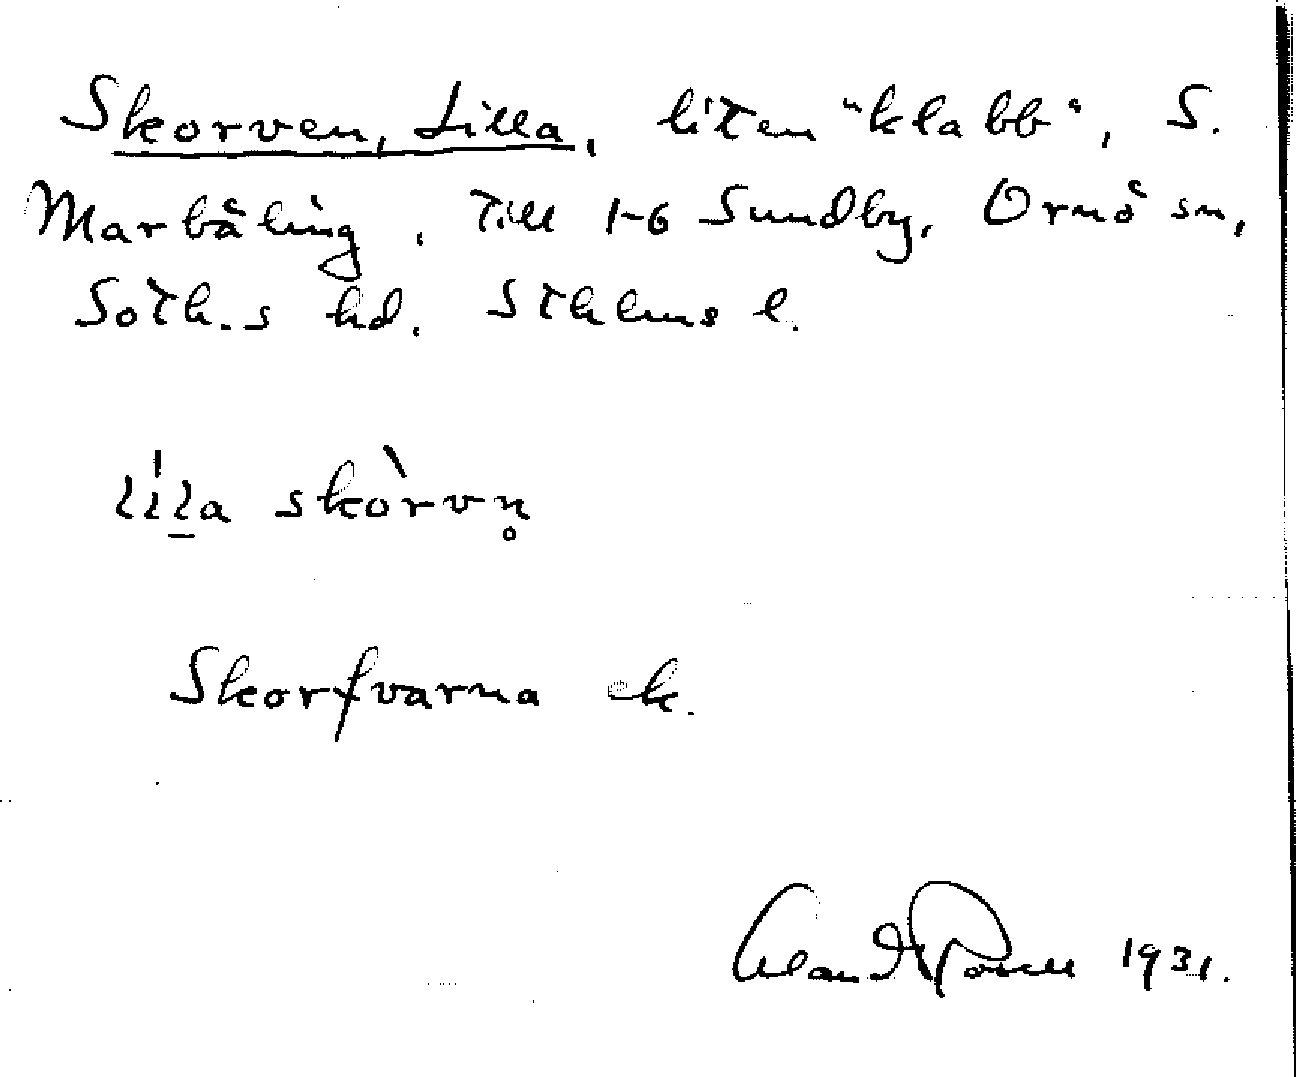 Skorven, Lilla, liten "klabb", S.
Marbäling. Till 1-6 Sundby, Ornö sn,
Soth.s hd. Sthlms l.
lila skòrvn̥
Skorfvarna ek.
1931.